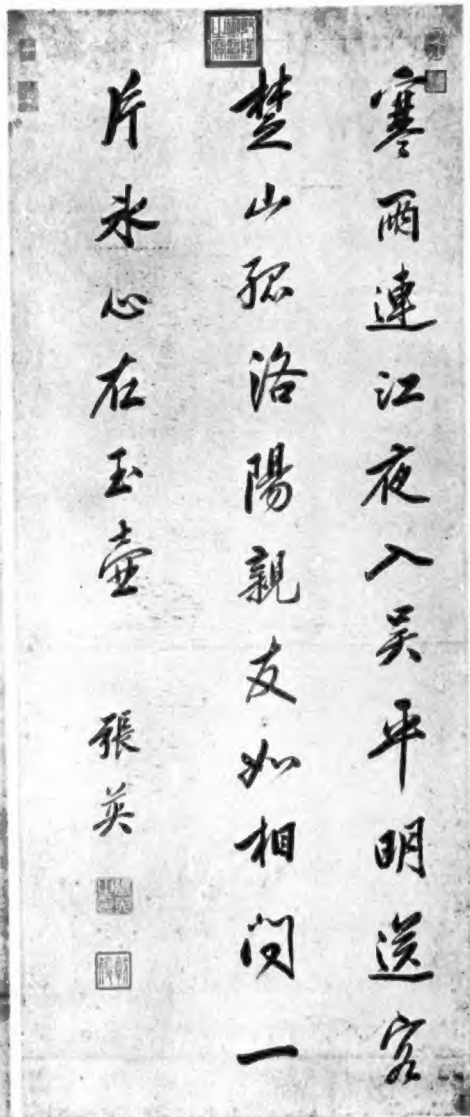 寒雨連江夜入吳平明送客
楚山孤洛陽親友如相問一
片冰心在玉壺
張英